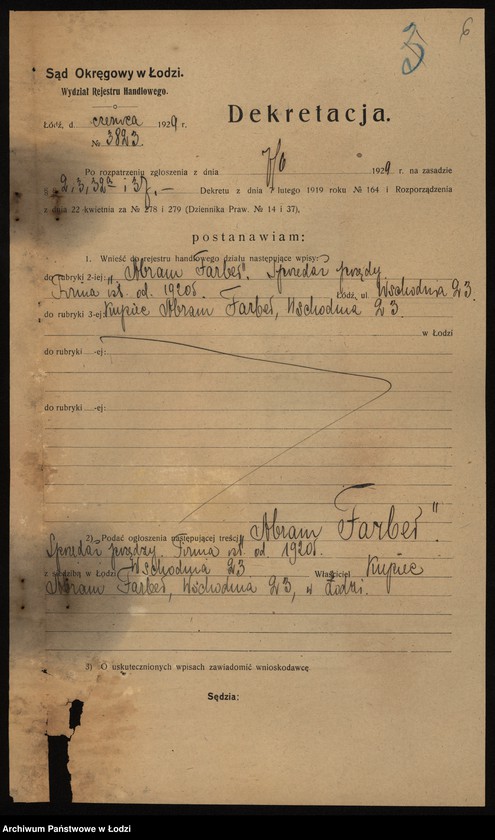 3
6
Sąd Okręgowy w Łodzi.
Wydział Rejestru Handlowego.
Łódź, d. czerwca 1929 r.
№ 3823.
Dekretacja.
Po rozpatrzeniu zgłoszenia z dnia 7/6 1929 r. na zasadzie
2, 3, 32a i 37. — Dekretu z dnia 7 lutego 1919 roku № 164 i Rozporządzenia
z dnia 22 kwietnia za № 278 i 279 (Dziennika Praw. № 14 i 37),
postanawiam:
1. Wnieść do rejestru handlowego działu następujące wpisy:
do rubryki 2-iej: „Abram Farber". Sprzedaż przędzy
Firma ist. od. 1920r. Łódź, ul. Wschodnia 23.
do rubryki 3-ej: Kupiec Abram Farber, Wschodnia 23
w Łodzi
do rubryki -ej:
do rubryki -ej:
2) Podać ogłoszenia następującej treści: „Abram Farber".
Sprzedaż przędzy. Firma ist. od. 1920r.
z siedzibą w Łodzi, Wschodnia 23 Właściciel Kupiec
Abram Farber, Wschodnia 23, w Łodzi.
3) O uskutecznionych wpisach zawiadomić wnioskodawcę
Sędzia:
Archiwum Państwowe w Łodzi